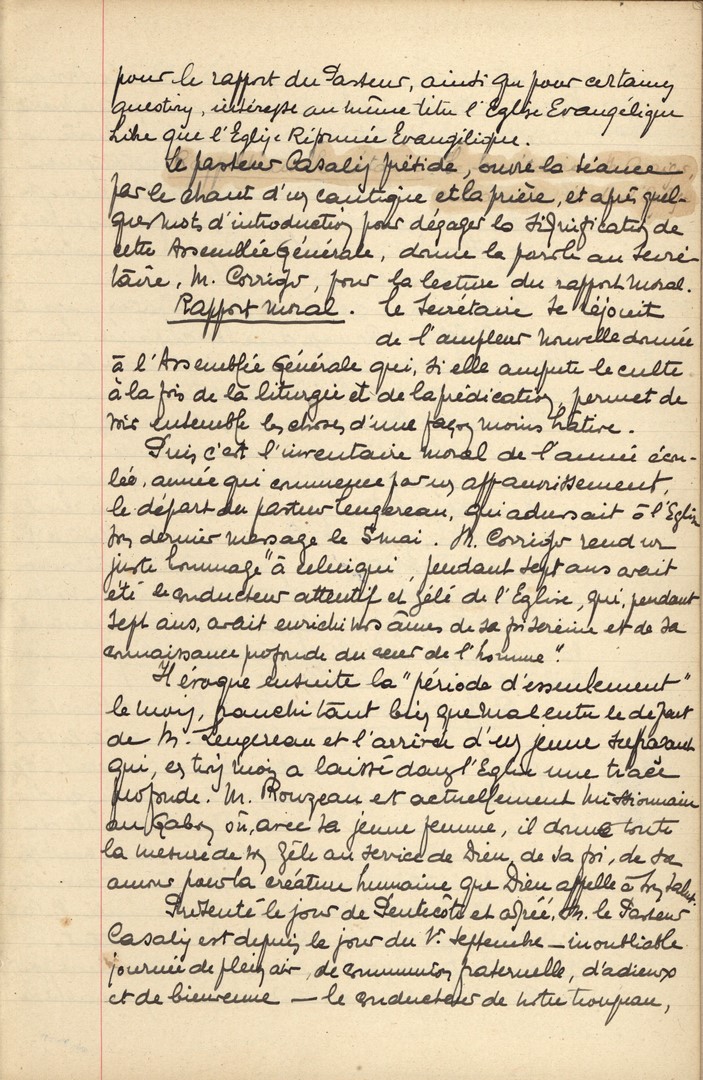 pour le rapport du Pasteur, ainsi que pour certaines
questions, intéresse au même titre l'Eglise Evangélique
Libre que l'Eglise Réformée Evangélique.
Le pasteur Casalis préside, ouvre la séance
par le chant d'un cantique et la prière, et après quel-
ques mots d'introduction pour dégager la signification de
cette Assemblée Générale, donne la parole au Secré-
taire, M. Corrigo, pour la lecture du rapport moral.
Rapport moral. Le Secrétaire se réjouit
de l'ampleur nouvelle donnée
à l'Assemblée Générale qui, si elle ampute le culte
à la fois de la liturgie et de la prédication, permet de
voir ensemble les choses d'une façon moins hâtive.
Puis c'est l'inventaire moral de l'année écou-
lée, année qui commence par un appauvrissement,
le départ du pasteur Lengereau, qui adressait à l'Eglise
son dernier message le 5 mai. M. Corrigo rend un
juste hommage "à celui qui, pendant sept ans avait
été le conducteur attentif et zélé de l'Eglise, qui, pendant
sept ans, avait enrichi nos âmes de sa foi sereine et de sa
connaissance profonde du coeur de l'homme".
Il évoque ensuite la "période d'esseulement"
le mois, franchi tant bien que mal entre le départ
de M. Lengereau et l'arrivée d'un jeune suffragant
qui, en trois mois a laissé dans l'Eglise une trace
profonde. M. Rouzeau est actuellement missionnaire
au Gabon où, avec sa jeune femme, il donne toute
la mesure de son zèle au service de Dieu, de sa foi, de son
amour pour la créature humaine que Dieu appelle à son salut.
Présenté le jour de Pentecôte et agréé, M. le Pasteur
Casalis est depuis le jour du 1er Septembre — inoubliable
journée de plein air, de communion fraternelle, d'adieux
et de bienvenue — le conducteur de notre troupeau,